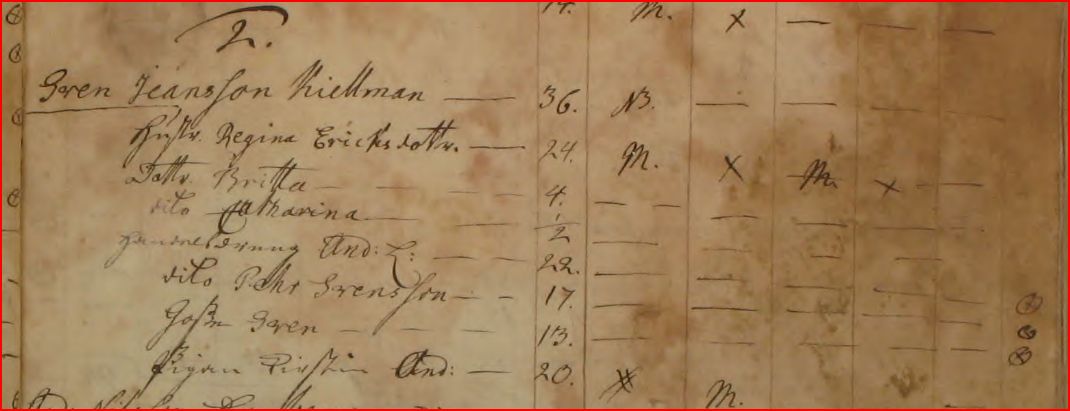 14. M. x — — —
2.
Sven Jeansson Kiellman — 36. N3. — — — —
Hustr. Regina Ericksdottr. — 24. M. x M. x — —
Dottr. Britta — — — — 4. — —
dito Catharina — — 1/2 — — — —
Handelsdreng And: L: — — — 22. — — — —
dito Pehr Svensson — — 17. — — — —
Goßen Sven — — — — 13. — — — —
Pigan Kirstin And: — 20. M.